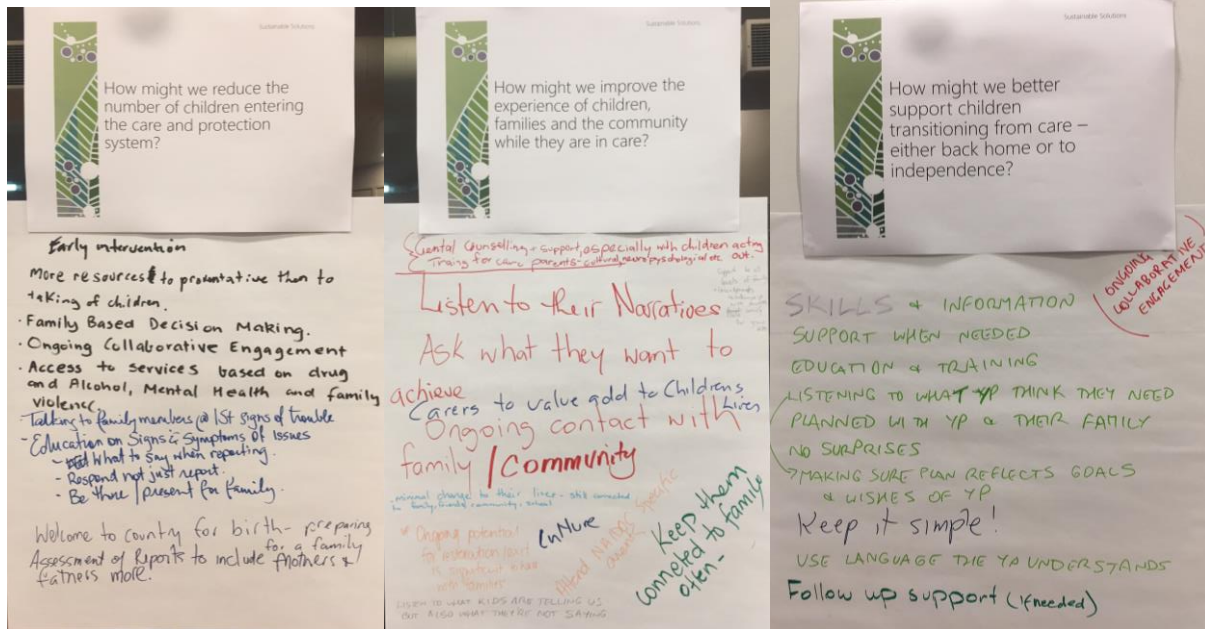 Sustainable Solutions
How might we reduce the
number of children entering
the care and protection
system?
Early intervention
More resources to preventative then to
taking of children.
· Family Based Decision Making.
· Ongoing Collaborative Engagement
· Access to services based on drug
and Alcohol, Mental Health and family
violence
Talking to family members @ 1st signs of trouble
- Education on Signs & Symptoms of Issues
- What to say when reporting.
- Respond not just report.
- Be there / present for family.
Welcome to country for birth - preparing
for a family
Assessment of Reports to include Mothers &
fathers more.
Sustainable Solutions
How might we improve the
experience of children,
families and the community
while they are in care?
Counselling + support, especially with children acting
out.
for parents - cultural,
Listen to their Narratives
Ask what they want to
achieve
Carers to value add to Childrens
Lives
Ongoing contact with
family / Community
- minimal change to their lives - still connected
to family, friends, community, school
* Ongoing potential
for
with
families
Culture
Specific
Keep them
conneted to family
often -
LISTEN TO WHAT KIDS ARE TELLING US
BUT ALSO WHAT THEY'RE NOT SAYING
Sustainable Solutions
How might we better
support children
transitioning from care –
either back home or to
independence?
ONGOING
COLLABORATIVE
ENGAGEMENT
SKILLS & INFORMATION
SUPPORT WHEN NEEDED
EDUCATION & TRAINING
LISTENING TO WHAT YP THINK THEY NEED
PLANNED WITH YP & THEIR FAMILY
NO SURPRISES
MAKING SURE PLAN REFLECTS GOALS
& WISHES OF YP
Keep it simple!
USE LANGUAGE THE YP UNDERSTANDS
Follow up support (if needed)